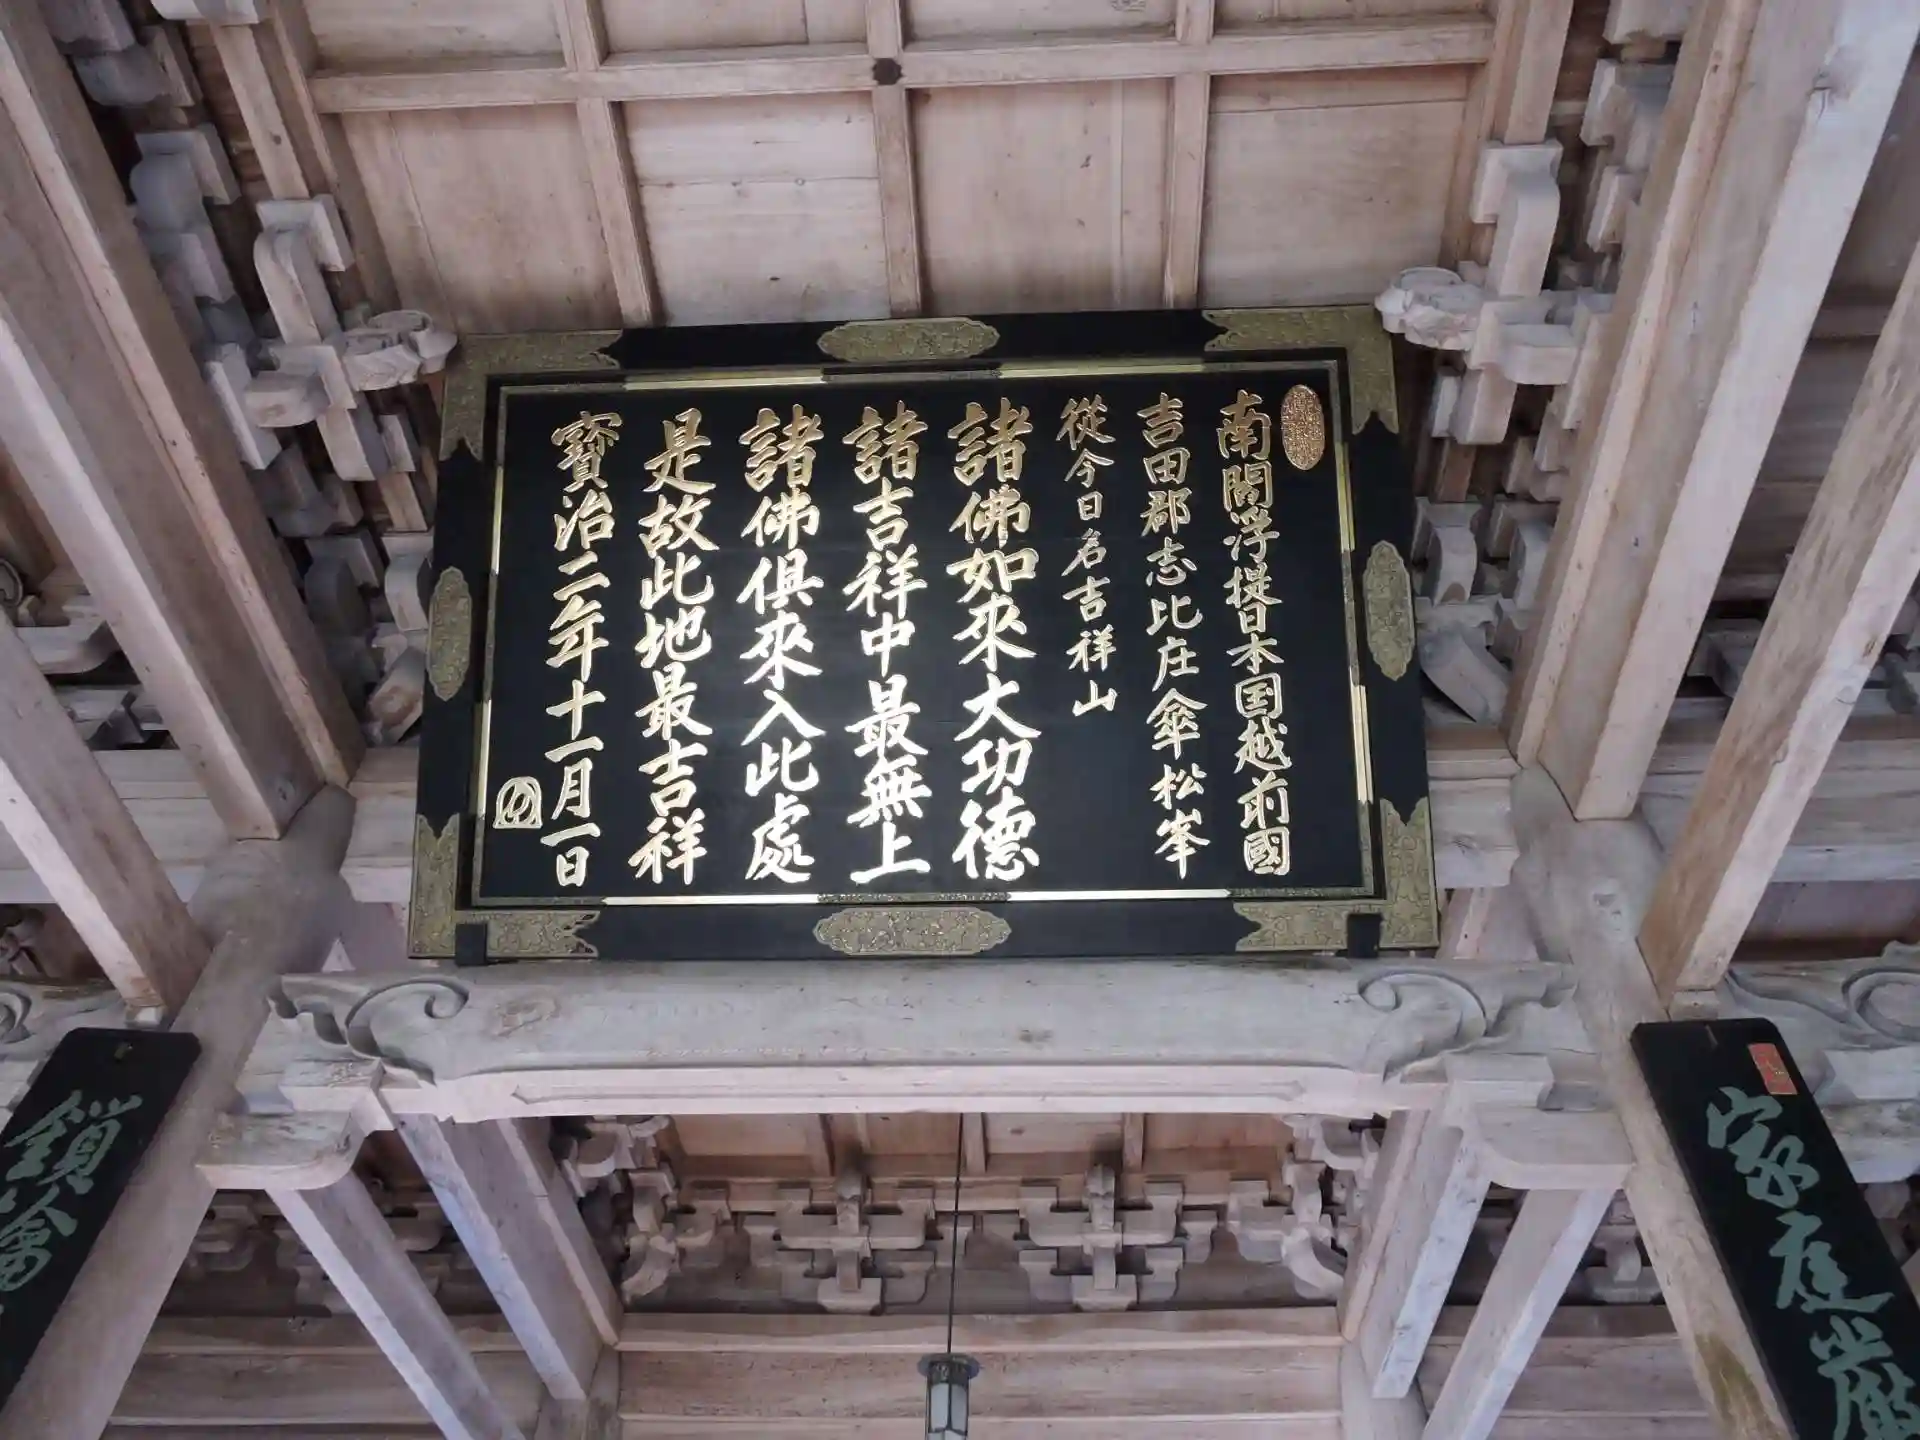 南閻浮提日本国越前國
吉田郡志比庄傘松峯
從今日名吉祥山
諸佛如來大功德
諸吉祥中最無上
諸佛俱來入此處
是故此地最吉祥
寶治二年十一月一日
家庭嚴
鎖鑰